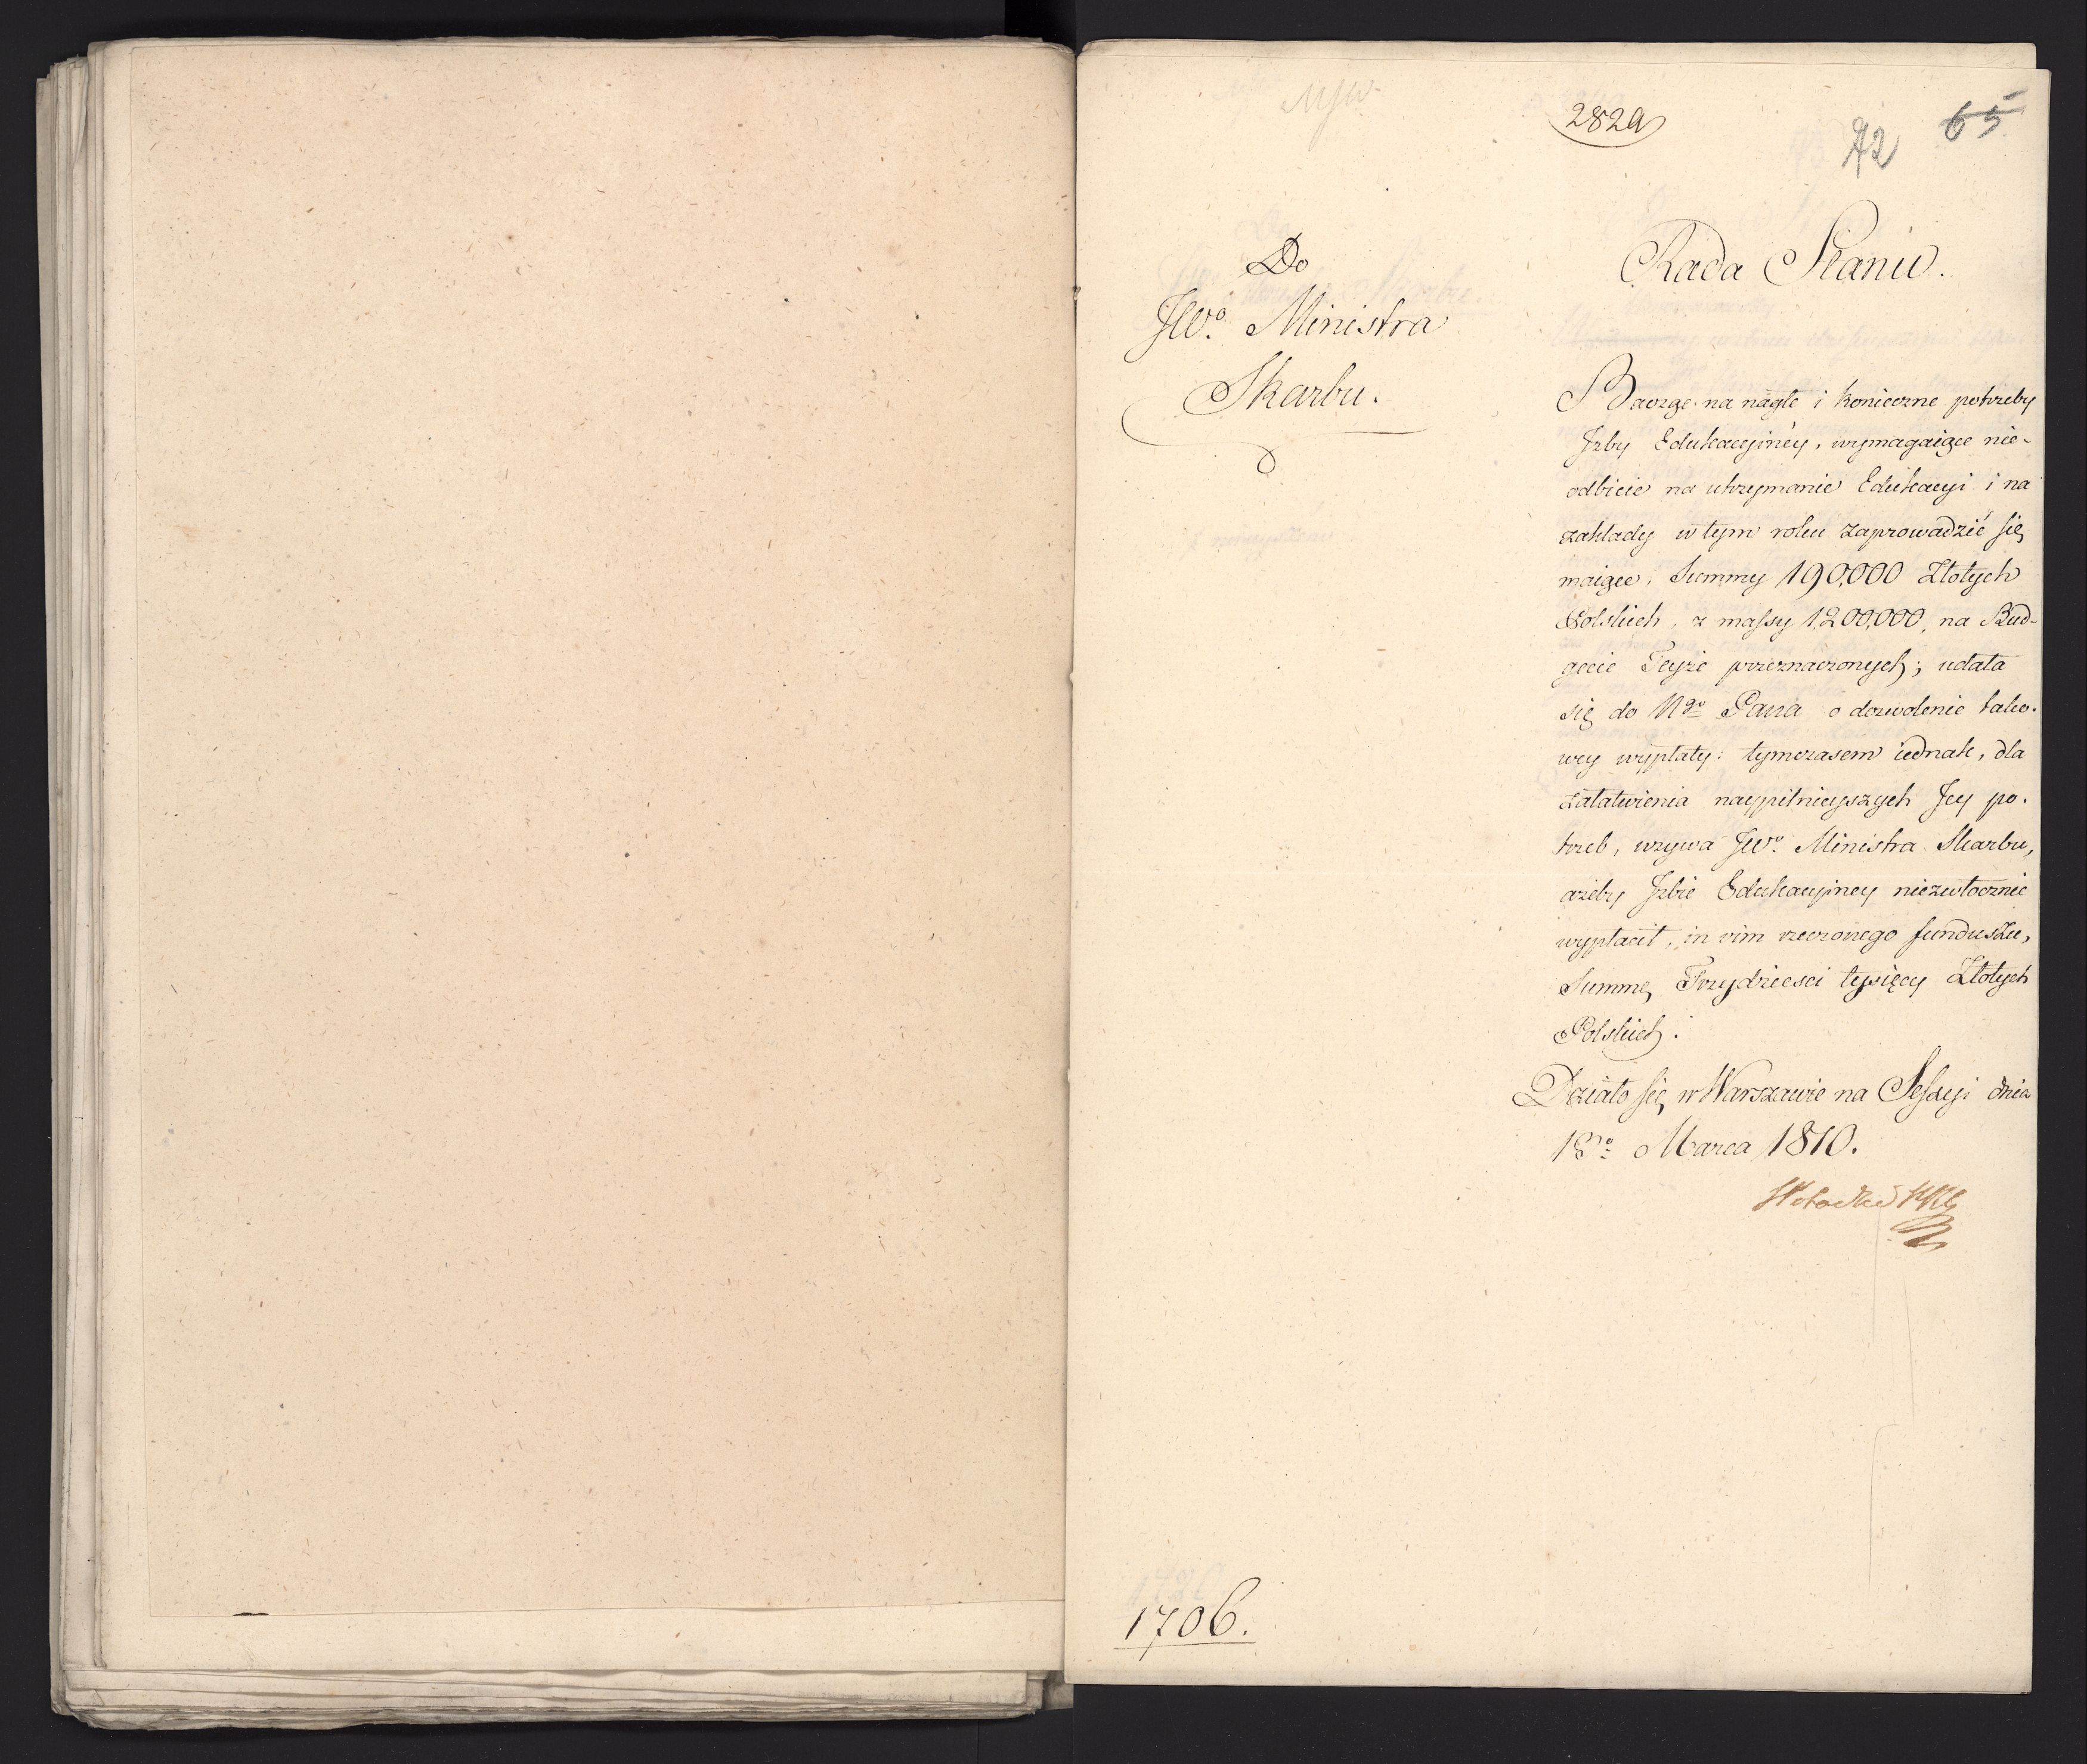 2829
72 65
Do
JWo. Ministra
Skarbu.
Rada Stanu.
Bacząc na nagłe i konieczne potrzeby
Jzby Edukacyjnéy, wymagaiące nie-
odbicie na utrzymanie Edukacyi i na
zakłady w tym roku zaprowadzić się
maiące, Summy 190,000 Złotych
Polskich, z massy 1,200,000, na Bud-
gecie Teyże przeznaczonych; udała
się do Ngo Pana o dozwolenie tako-
wey wypłaty: tymczasem iednak, dla
załatwienia naypilnieyszych Jey po-
trzeb, wzywa JWo. Ministra Skarbu,
ażeby Jzbie Edukacyiney niezwłocznie
wypłacił, in vim rzeczonego funduszu,
Summę Trzydzieści tysięcy Złotych
Polskich.
Działo się w Warszawie na Sessyi dnia
Marca 1810.
1706.